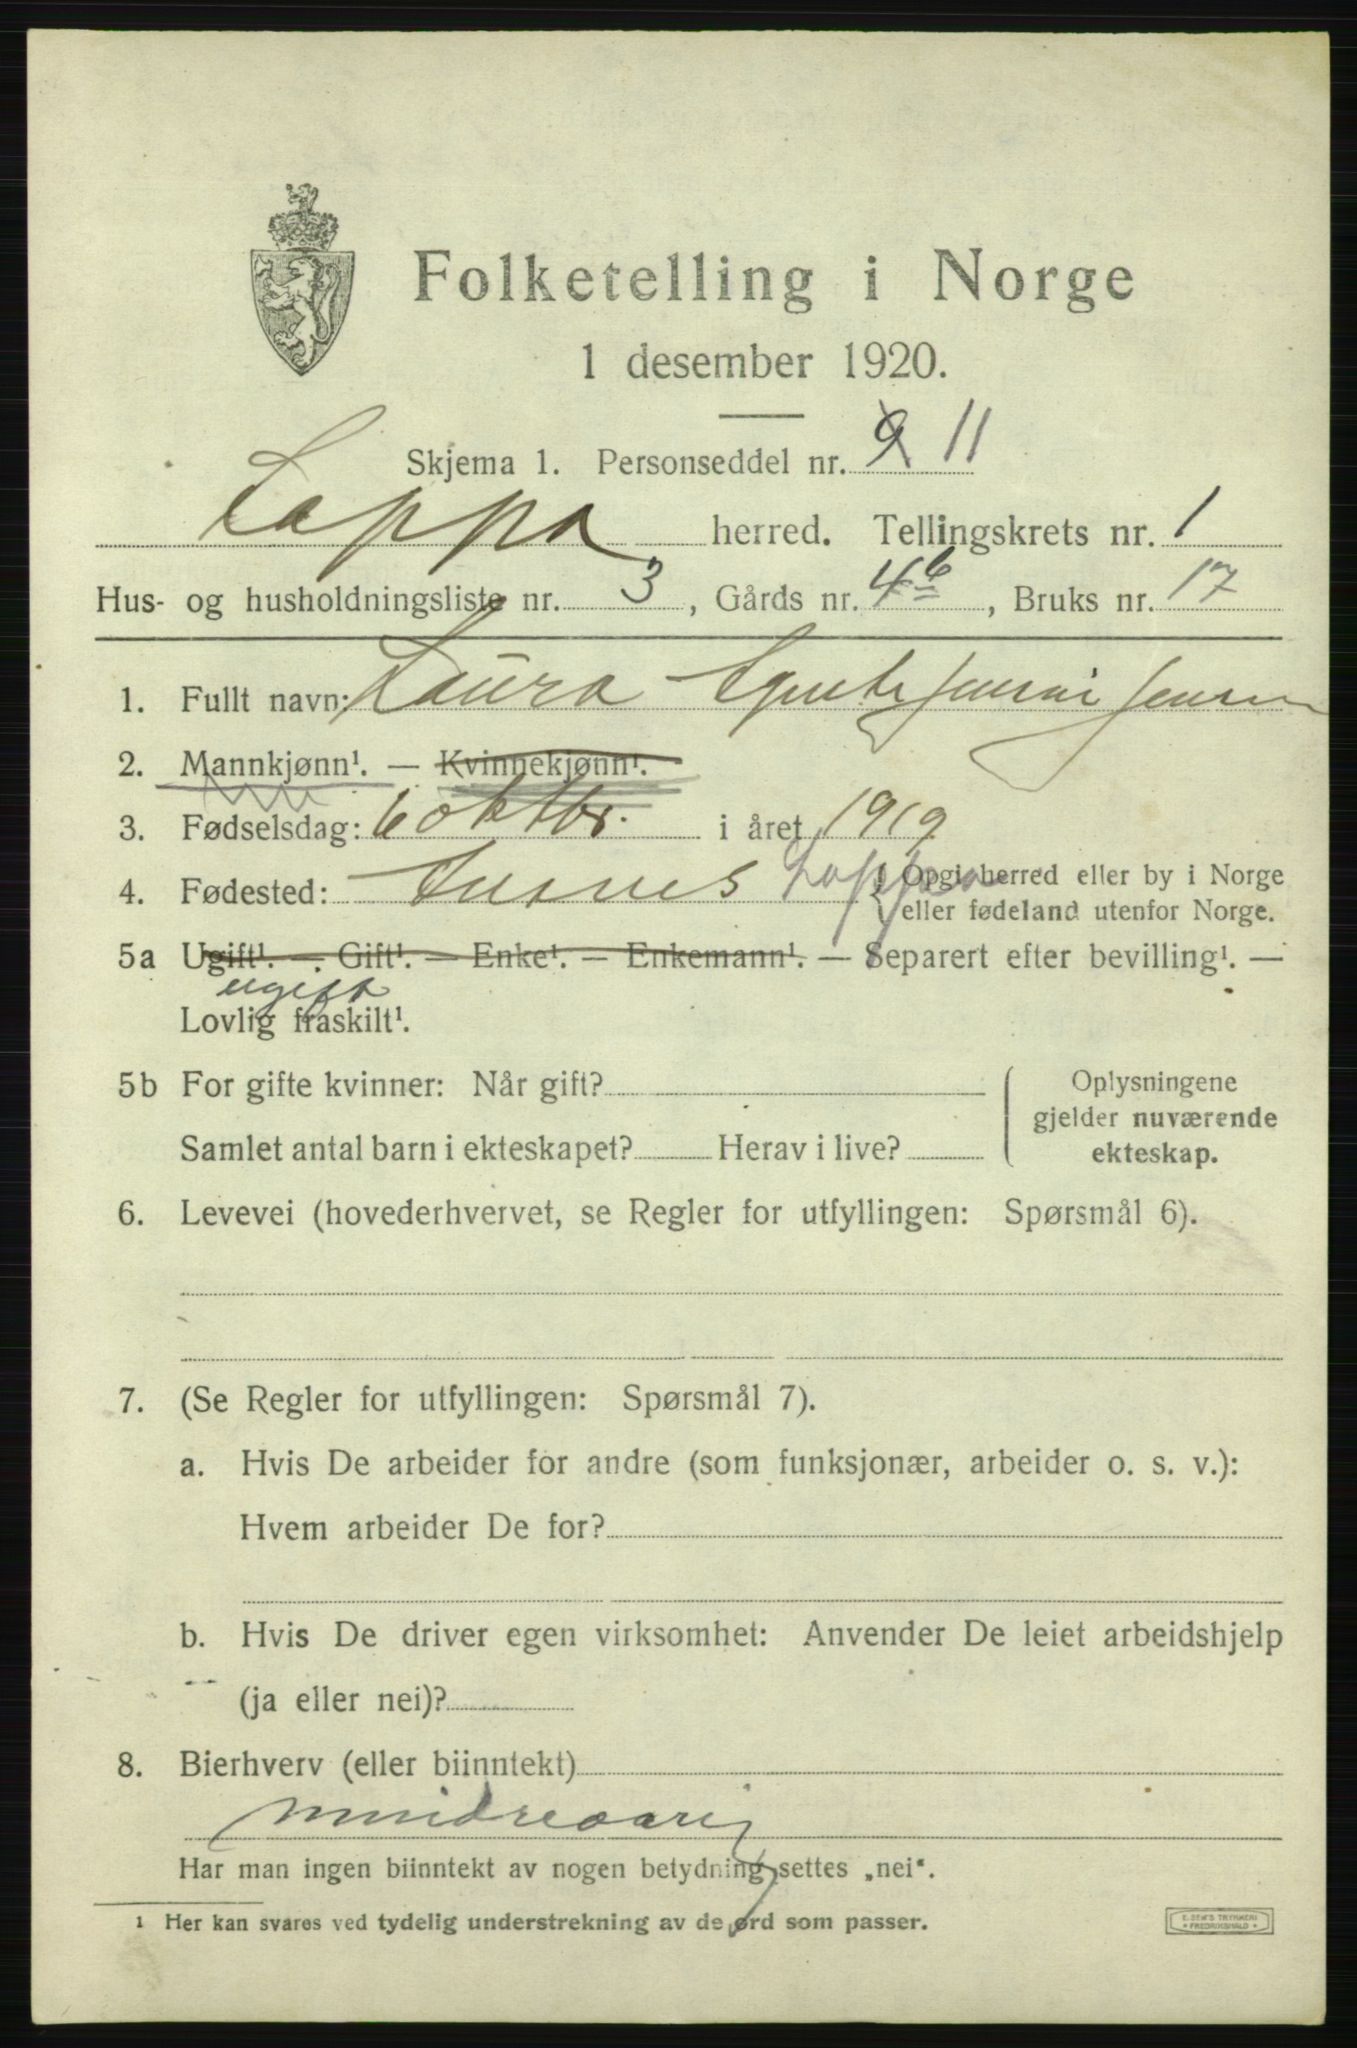 Folketelling i Norge
1 desember 1920.
Skjema 1. Personseddel nr. 9 11
Loppa herred. Tellingskrets nr. 1
Hus- og husholdningsliste nr. 3, Gårds nr. 4 6, Bruks nr. 17
1. Fullt navn: Laura Jensen
2. Mannkjønn¹. — Kvinnekjønn¹.
3. Fødselsdag: 6 oktbr. i året 1919
4. Fødested: Loppa { Opgi herred eller by i Norge
eller fødeland utenfor Norge.
5a Ugift¹. — Gift¹. — Enke¹. — Enkemann¹. — Separert efter bevilling¹. —
ugift
Lovlig fraskilt¹.
5b For gifte kvinner: Når gift? { Oplysningene
gjelder nuværende
Samlet antal barn i ekteskapet? Herav i live? ekteskap.
6. Levevei (hovederhvervet, se Regler for utfyllingen: Spørsmål 6).
7. (Se Regler for utfyllingen: Spørsmål 7).
a. Hvis De arbeider for andre (som funksjonær, arbeider o. s. v.):
Hvem arbeider De for?
b. Hvis De driver egen virksomhet: Anvender De leiet arbeidshjelp
(ja eller nei)?
8. Bierhverv (eller biinntekt)
mindreaarig
Har man ingen biinntekt av nogen betydning settes „nei“.
¹ Her kan svares ved tydelig understrekning av de ord som passer.
E. SEM'S TRYKKERI
FREDRIKSHALD